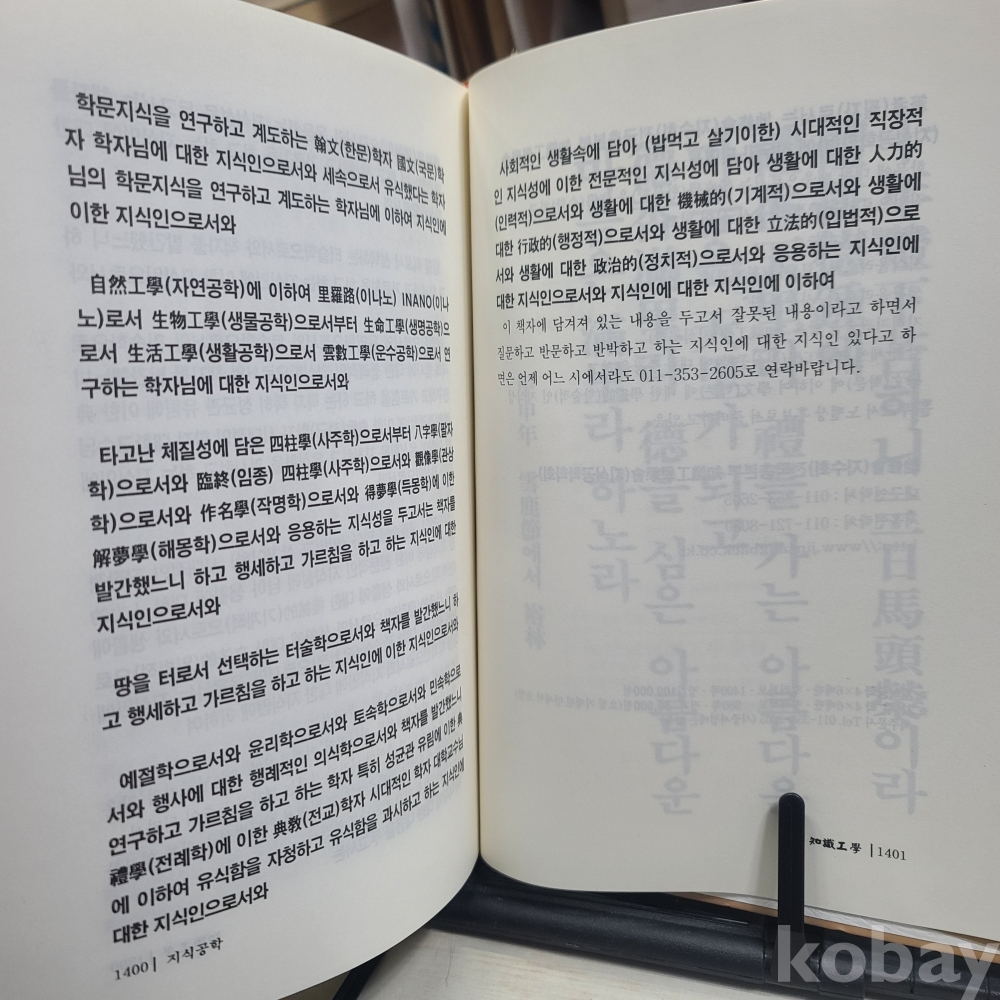 학문지식을 연구하고 계도하는 翰文(한문)학자 國文(국문)학
자 학자님에 대한 지식인으로서와 세속으로서 유식했다는 학자
님의 학문지식을 연구하고 계도하는 학자님에 이하여 지식인에
이한 지식인으로서와
自然工學(자연공학)에 이하여 里羅路(이나노) INANO(이나
노)로서 生物工學(생물공학)으로서부터 生命工學(생명공학)으
로서 生活工學(생활공학)으로서 雲數工學(운수공학)으로서 연
구하는 학자님에 대한 지식인으로서와
타고난 체질성에 담은 四柱學(사주학)으로서부터 八字學(팔자
학)으로서와 臨終(임종) 四柱學(사주학)으로서와 觀像學(관상
학)으로서와 作名學(작명학)으로서와 得夢學(득몽학)에 이한
解夢學(해몽학)으로서와 응용하는 지식성을 두고서는 책자를
발간했느니 하고 행세하고 가르침을 하고 하는 지식인에 대한
지식인으로서와
땅을 터로서 선택하는 터술학으로서와 책자를 발간했느니 하
고 행세하고 가르침을 하고 하는 지식인에 이한 지식인으로서와
예절학으로서와 윤리학으로서와 토속학으로서와 민속학으로
서와 행사에 대한 행례적인 의식학으로서와 책자를 발간했느니
연구하고 가르침을 하고 하는 학자 특히 성균관 유림에 이한 典
禮學(전례학)에 이한 典敎(전교)학자 시대적인 학자 대학교수님
에 이하여 유식함을 자청하고 유식함을 과시하고 하는 지식인에
대한 지식인으로서와
1400| 지식공학
사회적인 생활속에 담아 (밥먹고 살기이한) 시대적인 직장적
인 지식성에 이한 전문적인 지식성에 담아 생활에 대한 人力的
(인력적)으로서와 생활에 대한 機械的(기계적)으로서와 생활에
대한 行政的(행정적)으로서와 생활에 대한 立法的(입법적)으로
서와 생활에 대한 政治的(정치적)으로서와 응용하는 지식인에
대한 지식인으로서와 지식인에 대한 지식인에 이하여
이 책자에 담겨져 있는 내용을 두고서 잘못된 내용이라고 하면서
질문하고 반문하고 반박하고 하는 지식인에 대한 지식인 있다고 하
면은 언제 어느 시에서라도 011-353-2605로 연락바랍니다.
知識工學 |1401
kobay